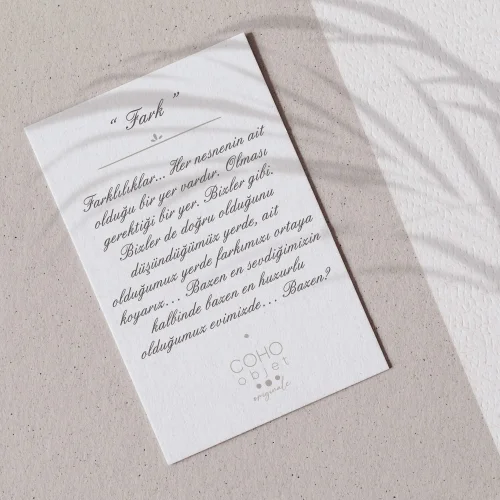 “ Fark ”
Farklılıklar... Her nesnenin ait
olduğu bir yer vardır. Olması
gerektiği bir yer. Bizler gibi.
Bizler de doğru olduğunu
düşündüğümüz yerde, ait
olduğumuz yerde farkımızı ortaya
koyarız... Bazen en sevdiğimizin
kalbinde bazen en huzurlu
olduğumuz evimizde... Bazen?
COHO
objet
originale